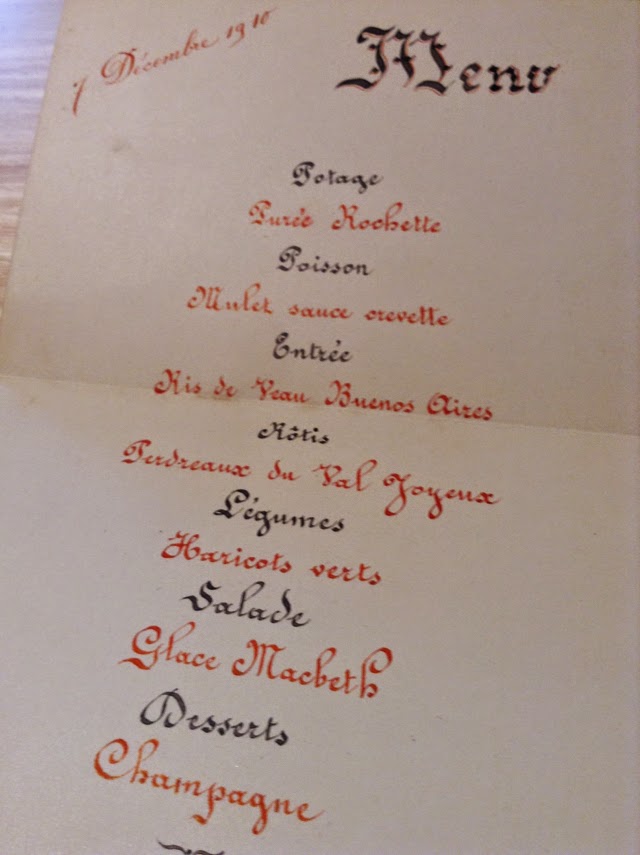 7 Décembre 1910
Menu
Potage
Purée Rochette
Poisson
Mulet sauce crevette
Entrée
Ris de Veau Buenos Aires
Rôtis
Perdreaux du Val Joyeux
Légumes
Haricots verts
Salade
Glace Macbeth
Desserts
Champagne